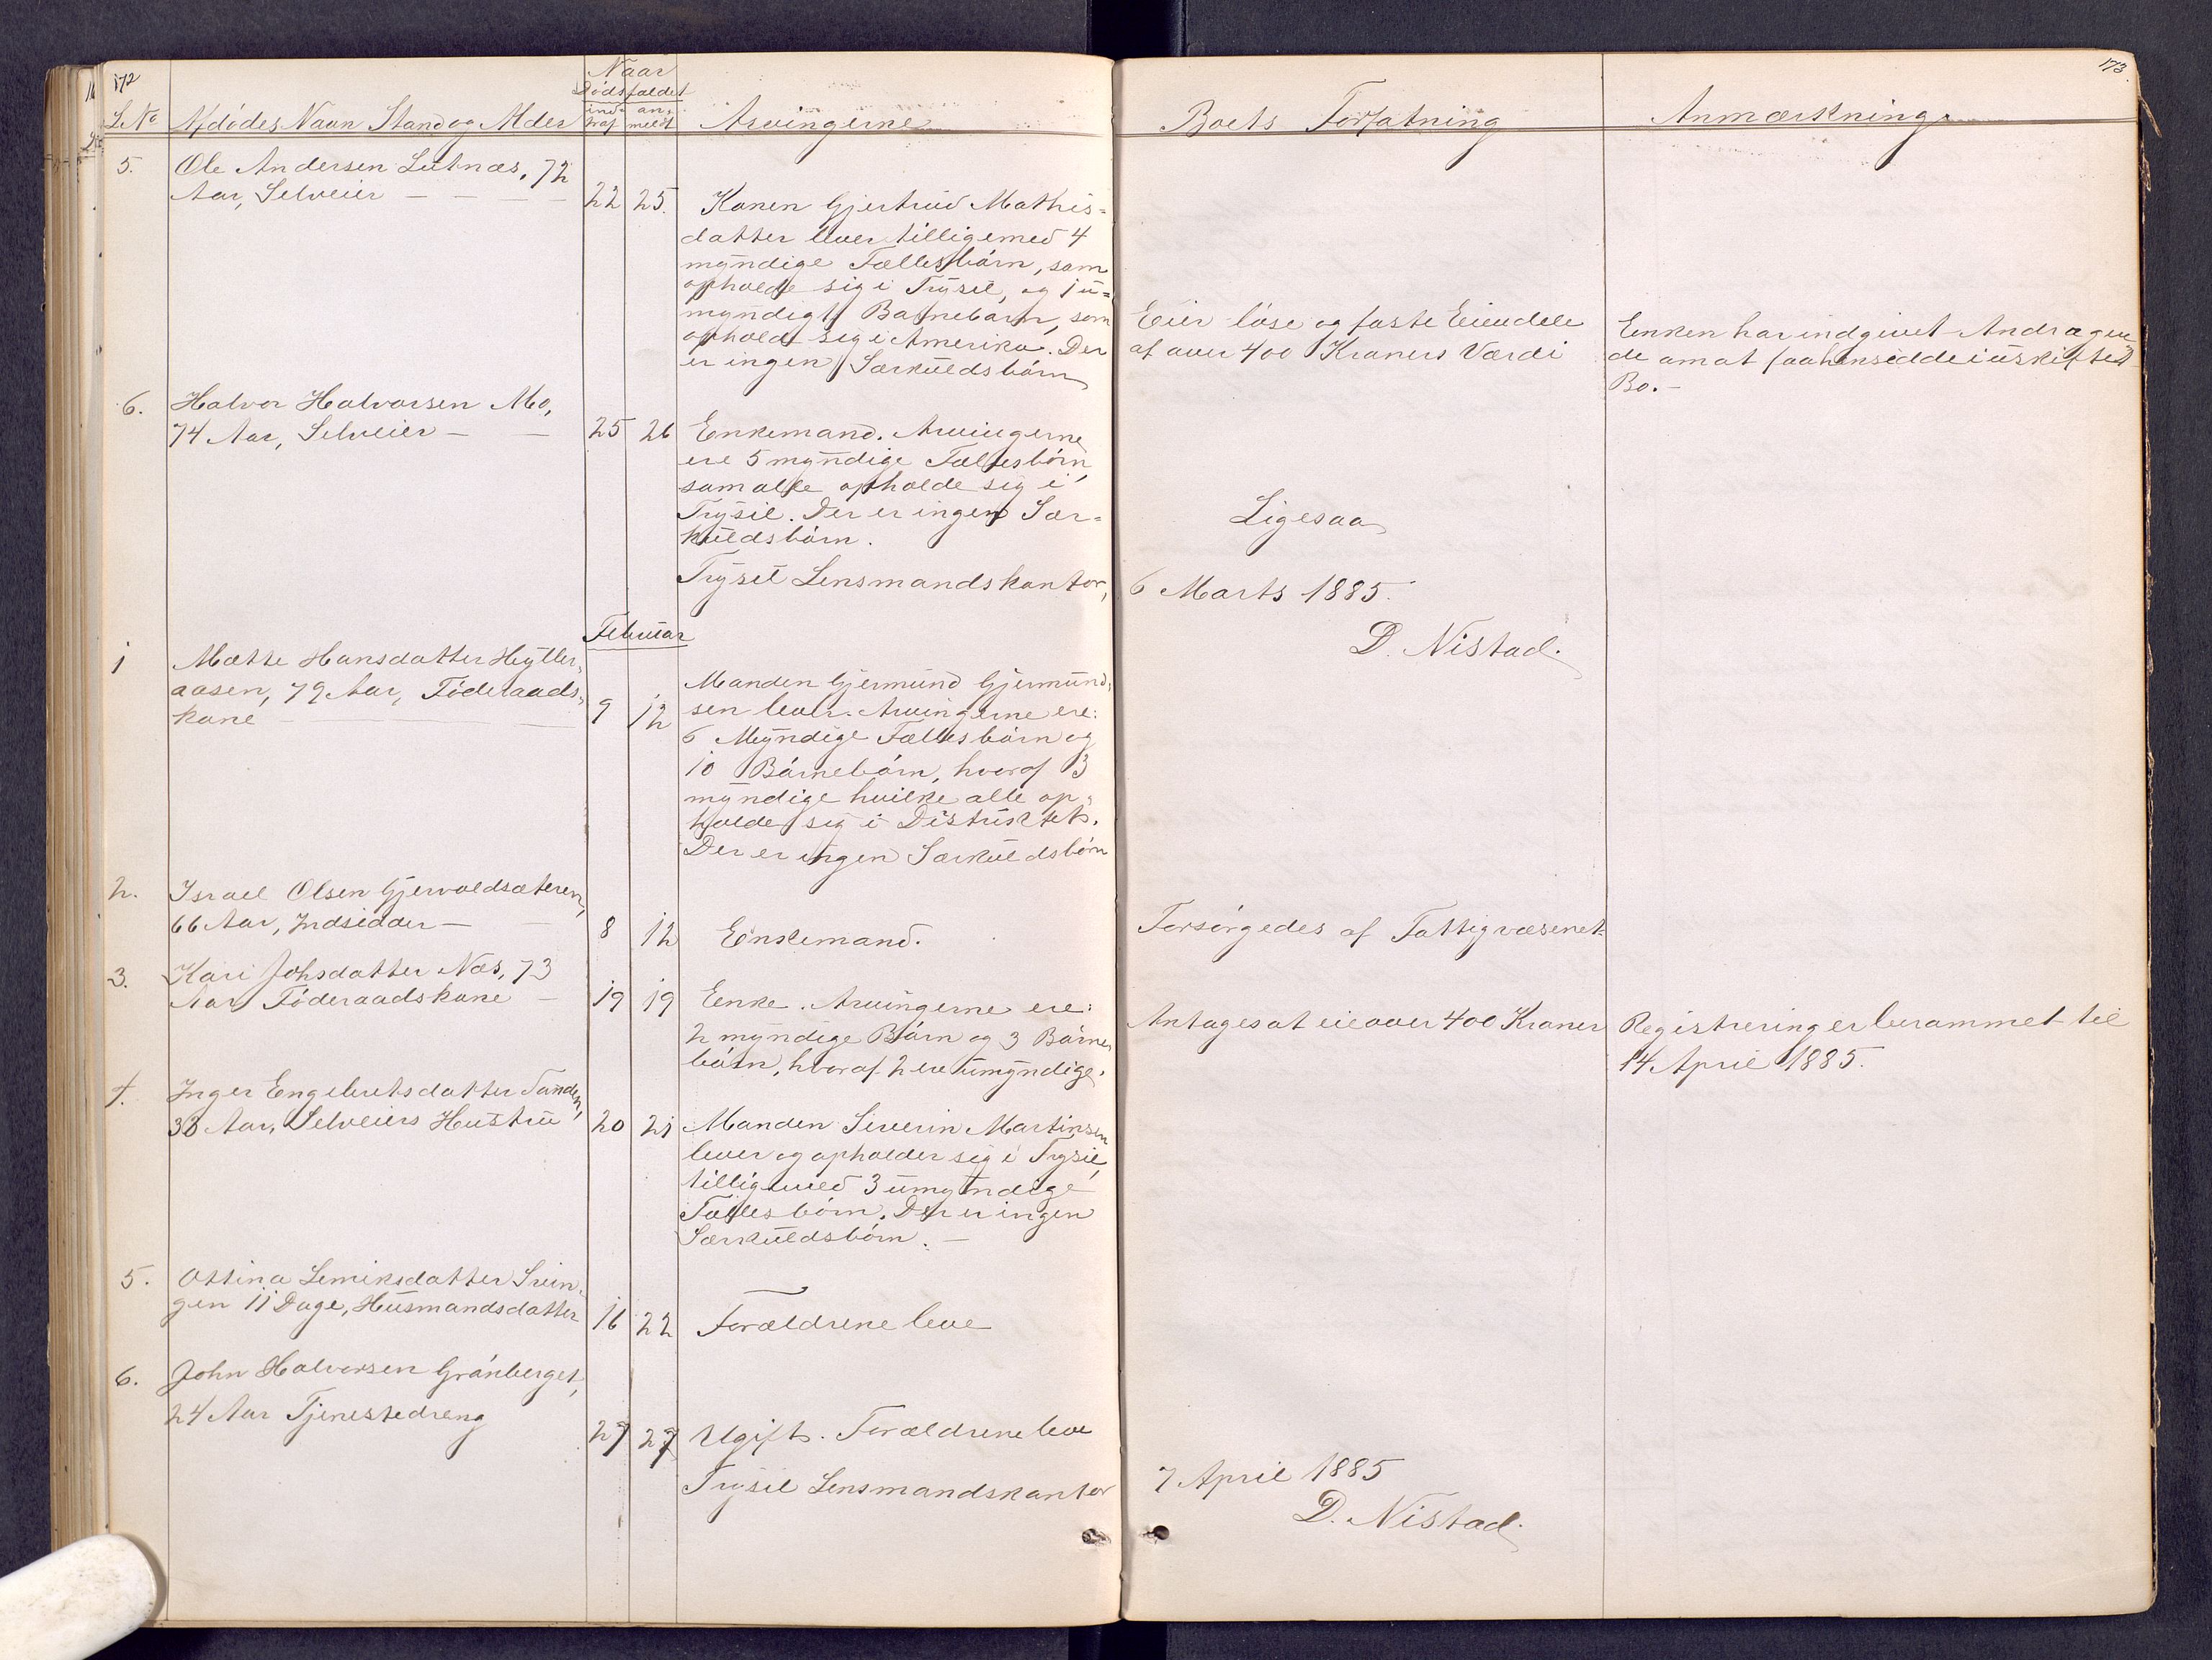 172
LNo
Afdødes Navn Stand og Alder
Naar
Dødsfaldet
ind-
traf
an-
meldt
Arvingerne
5.
Ole Andersen Lutnæs, 72
Aar, Selveier — — — —
22
25.
Konen Gjertrud Mathis=
datter lever tilligemed 4
myndige Fællesbørn, som
opholde sig i Trysil, og 1 u=
myndigt Barnebarn, som
opholdt sig i Amerika. Der
er ingen Særkuldsbørn
6.
Halvor Halvorsen Mo,
74 Aar, Selveier — —
25
26
Enkemand. Arvingerne
ere 5 myndige Fællesbørn,
som alle opholde sig i
Trysil. Der er ingen Sær=
kuldsbørn.
Trysil Lensmandskontor,
Februar
1
Mathe Hansdatter Hytler-
aasen, 79 Aar, Føderaads-
kone
9
12
Manden Gjermund Gjermund-
sen lever. Arvingerne ere:
6 Myndige Fællesbørn og
10 Børnebørn, hvoraf 3
myndige hvilke alle op-
holde sig i Distriktet.
Der er ingen Særkuldsbørn
2.
Israel Olsen Gjervoldsæteren,
66 Aar, Indsidder —
8
12
Enkemand.
3.
Kari Johsdatter Næs, 73
Aar Føderaadskone —
19
19
Enke. Arvingerne ere:
2 myndige Børn og 3 Børne
børn, hvoraf 2 ere umyndige.
4.
Inger Engebretsdatter Sanden,
38 Aar, Selveiers Hustru
20
21
Manden Severin Martinsen
lever og opholder sig i Trysil,
tilligemed 3 umyndige
Fællesbørn. Der er ingen
Særkuldsbørn. —
5.
Ottina Lemiksdatter
gen 11 Dage, Husmandsdatter
16
22
Forældrene leve
6.
John Halvorsen Grønberget,
24 Aar Tjenestedreng
27
27
Ugift. Forældrene leve
Trysil Lensmandskontor
173.
Boets Forfatning
Anmærkning.
Eier løse og faste Eiendele
af over 400 Kroners Værdi
Enken har indgivet Andragen
de om at faa hensidde i uskiftet
Bo. —
Ligesaa
6 Marts 1885.
D. Nistad.
Forsørgedes af Fattigvæsenet.
Antages at eie over 400 Kroner
Registrering er berammet til
14 April 1885.
7 April 1885
D. Nistad.